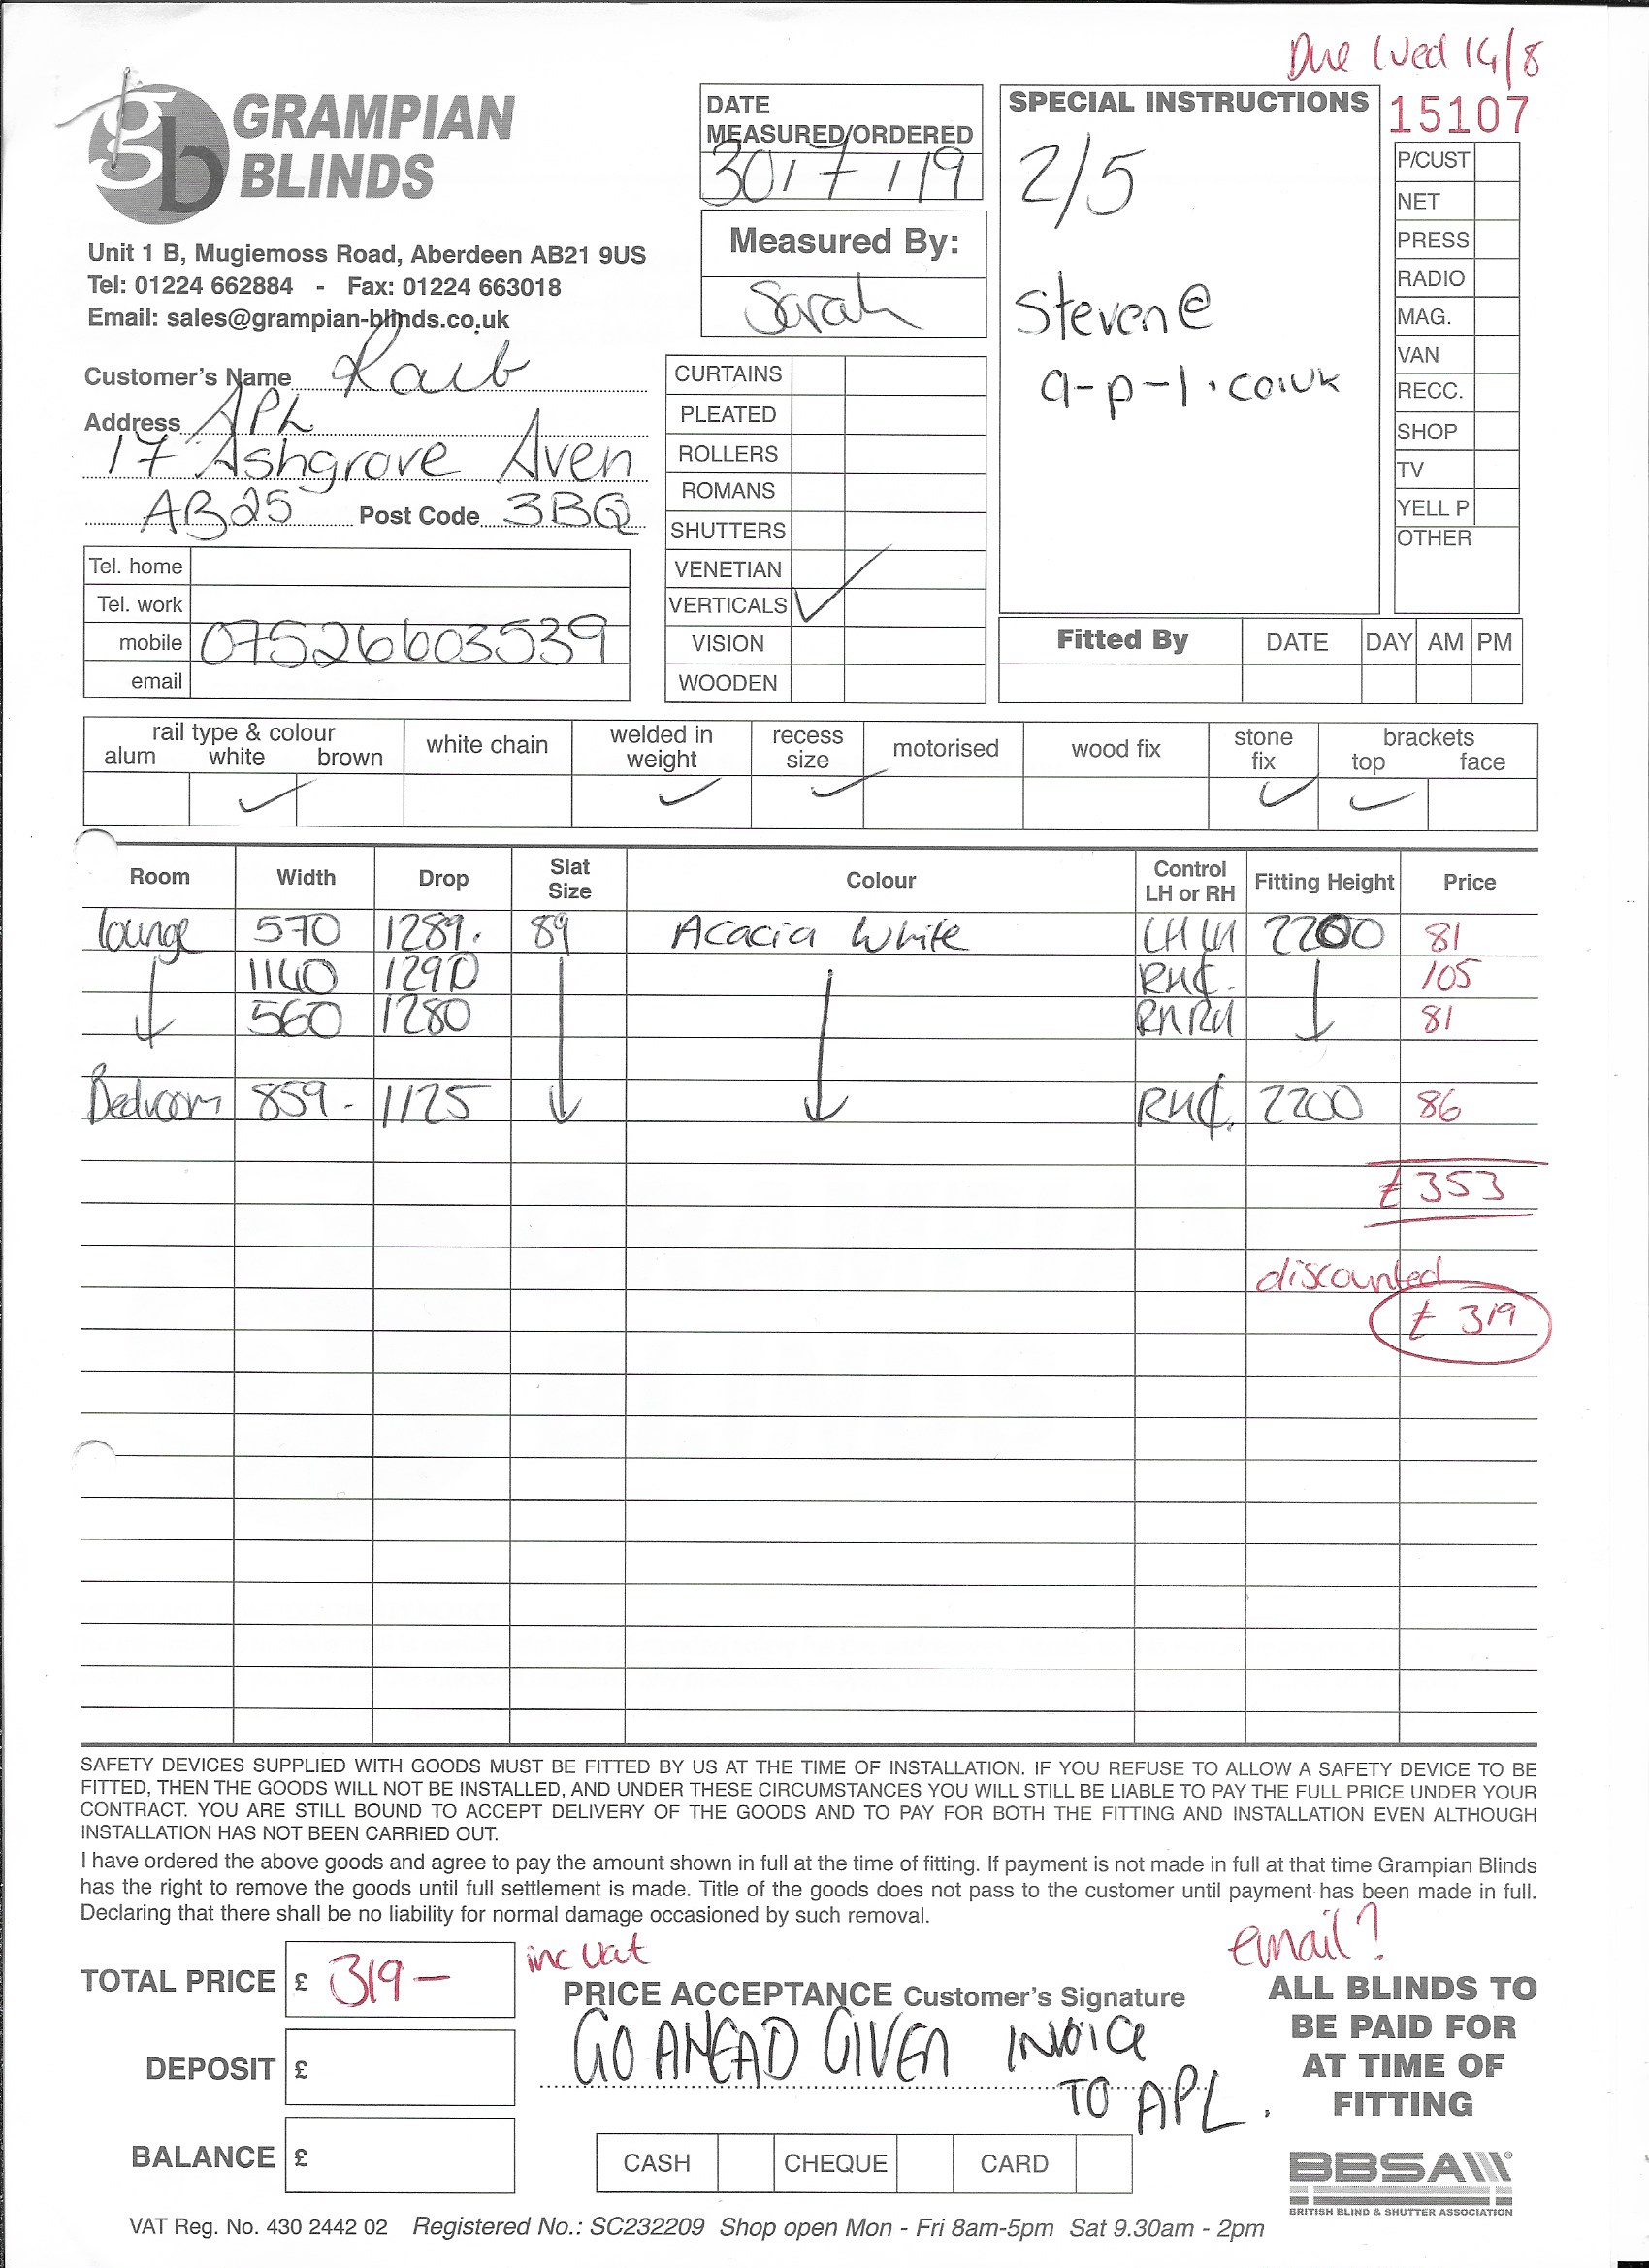 Due Wed 14/8
GRAMPIAN
BLINDS
Unit 1 B, Mugiemoss Road, Aberdeen AB21 9US
Tel: 01224 662884 - Fax: 01224 663018
Email: sales@grampian-blinds.co.uk
DATE
MEASURED/ORDERED
30/7/19
Measured By:
Sarah
SPECIAL INSTRUCTIONS
2/5
Steven@
a-p-l.co.uk
15107
P/CUST
NET
PRESS
RADIO
MAG.
VAN
RECC.
SHOP
TV
YELL P
OTHER
Customer's Name
Address APL
17 Ashgrove Aven
AB25 Post Code 3BQ
Tel. home
Tel. work
mobile 07526603539
email
CURTAINS
PLEATED
ROLLERS
ROMANS
SHUTTERS
VENETIAN
VERTICALS ✓
VISION
WOODEN
Fitted By DATE DAY AM PM
rail type & colour
alum white brown
white chain
welded in
weight
recess
size
motorised
wood fix
stone
fix
brackets
top face
✓ ✓ ✓ ✓ ✓
Room Width Drop Slat Size Colour Control LH or RH Fitting Height Price
lounge 570 1289. 89 Acacia White LH LH 2200 81
1140 1290 RH₵. 105
560 1280 RH RH 81
Bedroom 859 - 1125 RH₵. 2200 86
£353
discounted
£319
SAFETY DEVICES SUPPLIED WITH GOODS MUST BE FITTED BY US AT THE TIME OF INSTALLATION. IF YOU REFUSE TO ALLOW A SAFETY DEVICE TO BE
FITTED, THEN THE GOODS WILL NOT BE INSTALLED, AND UNDER THESE CIRCUMSTANCES YOU WILL STILL BE LIABLE TO PAY THE FULL PRICE UNDER YOUR
CONTRACT. YOU ARE STILL BOUND TO ACCEPT DELIVERY OF THE GOODS AND TO PAY FOR BOTH THE FITTING AND INSTALLATION EVEN ALTHOUGH
INSTALLATION HAS NOT BEEN CARRIED OUT.
I have ordered the above goods and agree to pay the amount shown in full at the time of fitting. If payment is not made in full at that time Grampian Blinds
has the right to remove the goods until full settlement is made. Title of the goods does not pass to the customer until payment has been made in full.
Declaring that there shall be no liability for normal damage occasioned by such removal.
TOTAL PRICE £ 319 - inc vat
email?
PRICE ACCEPTANCE Customer's Signature
GO AHEAD GIVEN INVOICE
TO APL.
DEPOSIT £
BALANCE £
CASH CHEQUE CARD
ALL BLINDS TO
BE PAID FOR
AT TIME OF
FITTING
BBSA
BRITISH BLIND & SHUTTER ASSOCIATION
VAT Reg. No. 430 2442 02 Registered No.: SC232209 Shop open Mon - Fri 8am-5pm Sat 9.30am - 2pm